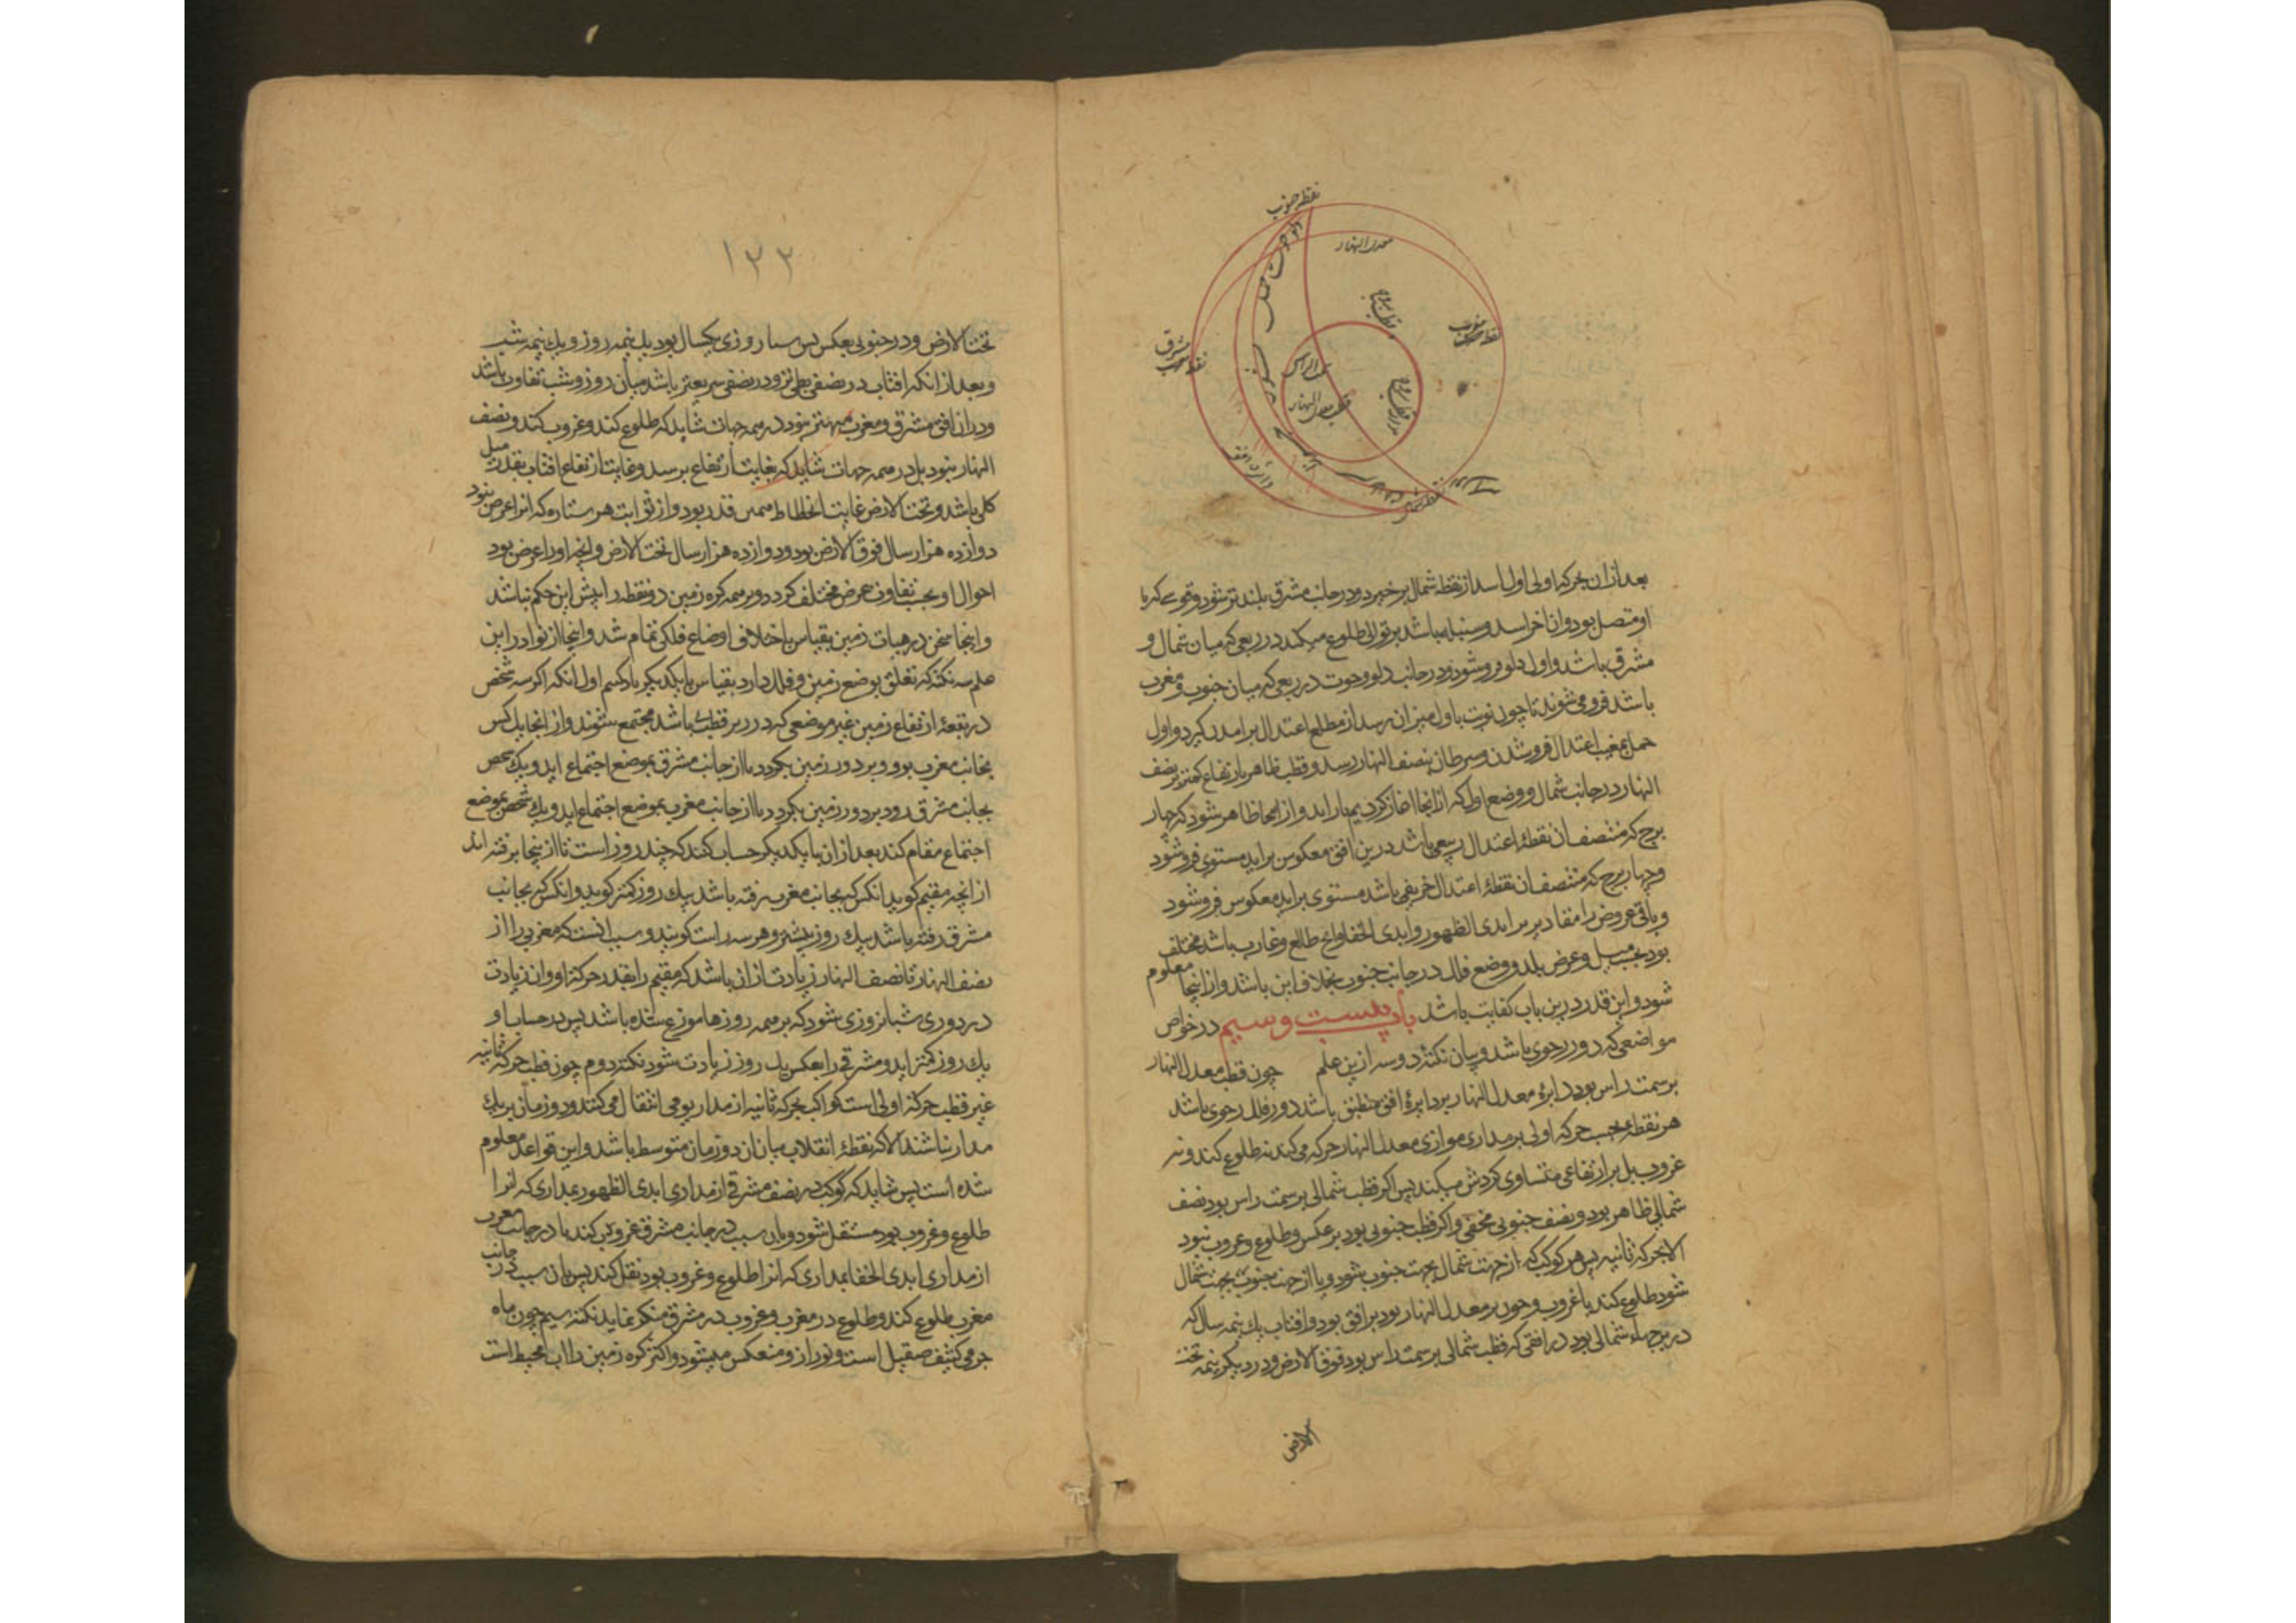 نقطه جنوب
معدل النهار
قطب بروج
نقطه مغرب
نقطه مشرق
سمت الراس
قطب معدل النهار
دایره افق
نقطه شمال
بعد از ان بحرکة اولی اول اسد از نقطه شمال برخیزد و در جانب مشرق بلندتر شود و قوسی که با
او متصل بود و ان اخر اسد و سنبله باشد بر توالی طلوع میکند در ربعی که میان شمال و
مشرق باشد و اول دلو فرو شود و در جانب دلو و حوت در ربعی که میان جنوب و مغرب
باشد فرو می شوند تا چون نوبت باول میزان رسد از مطلع اعتدال برامدن گیرد و اول
حمل بمغیب اعتدال فرو شدن و سرطان بنصف النهار رسد و قطب ظاهر بارتفاع کمتر بر نصف
النهار در جانب شمال و وضع اول که از انجا اغاز کردیم باز اید و از اینجا ظاهر شود که چهار
برج که منتصف ان نقطهٔ اعتدال ربیعی باشد درین افق معکوس براید مستوی فرو شود
و چهار برج که منتصف ان نقطهٔ اعتدال خریفی باشد مستوی براید معکوس فرو شود
و باقی عروض را مقادیر بر ابدی الظهور و ابدی الخفا و انچ طالع و غارب باشد مختلف
بود بحسب میل و عرض بلد و وضع فلک در جانب جنوب بخلاف این باشد و از اینجا معلوم
شود و این قدر درین باب کفایت باشد باب بیست و سیم در خواص
مواضعی که دور رحوی باشد و بیان نکتهٔ دو سه ازین علم چون قطب معدل النهار
بر سمت راس بود دایرهٔ معدل النهار بر دایرهٔ افق منطبق باشد دور فلک رحوی باشد
هر نقطهٔ بحسب حرکة اولی بر مداری موازی معدل النهار حرکه می کند نه طلوع کند و نه
غروب بل بر ارتفاعی متساوی کردش میکند پس اکر قطب شمالی بر سمت راس بود نصف
شمالی ظاهر بود و نصف جنوبی مخفی و اکر قطب جنوبی بود بر عکس و طلوع و غروب نبود
الا بحرکه ثانیه پس هر کوکب که از جهت شمال بجهت جنوب شود و یا از جهت جنوب بجهت شمال
شود طلوع کند یا غروب و چون بر معدل النهار بود بر افق بود و افتاب یک نیمه سال که
در برجهاء شمالی بود در افقی که قطب شمالی بر سمت راس بود فوق الارض و در دیکر نیمه تحت
الارض
۱۲۲
تحت الارض و در جنوبی بعکس پس شبانروزی یکسال بود یک نیمه روز و یک نیمه شب
و بعد از انکه افتاب در نصفی بطی تر و در نصفی سریعتر باشد میان روز و شب تفاوت باشد
و دران افق مشرق و مغرب مبین نبود در همه جهات شاید که طلوع کند و غروب کند و نصف
النهار نبود بل در همه جهات شاید که بغایت ارتفاع برسد و غایت ارتفاع افتاب بقدر میل
کلی باشد و تحت الارض غایت انحطاط همین قدر بود و از ثوابت هر ستاره که انرا عرض نبود
دوازده هزار سال فوق الارض بود و دوازده هزار سال تحت الارض و انچه او را عرض بود
احوال او بحسب تفاوت عرض مختلف کردد و بر همه کره زمین دو نقطه را بیش این حکم نباشد
و اینجا سخن در هیات زمین بقیاس با اختلاف اوضاع فلکی تمام شد و اینجا از نوادر این
علم سه نکته که تعلق بوضع زمین و فلک دارد بقیاس با یکدیکر یاد کنیم اول انکه اکر سه شخص
در بقعهٔ از بقاع زمین غیر موضعی که در زیر قطب باشد مجتمع شوند و از انجا یک کس
بجانب مغرب رود و بر دور زمین بکردد تا از جانب مشرق بموضع اجتماع اید و یک شخص
بجانب مشرق رود بر دور زمین بکردد تا از جانب مغرب بموضع اجتماع اید و یک شخص بموضع
اجتماع مقام کند بعد از ان با یکدیکر حساب کنند که چند روز است تا از اینجا برفته اند
از انچه مقیم کوید انکس که بجانب مغرب رفته باشد یک روز کمتر کوید و انکس که بجانب
مشرق رفته باشد یک روز بیشتر و هر سه راست کویند و سبب انست که مغربی را از
نصف النهار تا نصف النهار زیادت از ان باشد که مقیم را بقدر حرکة او و ان زیادت
در دوری شبانروزی شود که بر همه روزها موزع شده باشد پس در حساب او
یک روز کمتر اید و مشرقی را بعکس یک روز زیادت شود نکته دوم چون قطب حرکة ثانیه
غیر قطب حرکة اولی است کواکب بحرکه ثانیه از مدار یومی انتقال می کنند و دو زمان بر یک
مدار نباشند الا که نقطهٔ انقلاب میان ان دو زمان متوسط باشد و این قواعد معلوم
شده است پس شاید که کوکب در نصف مشرقی از مداری ابدی الظهور بمداری که انرا
طلوع و غروب بود منتقل شود و بان سبب در جانب مشرق غروب کند یا در جانب مغرب
از مداری ابدی الخفا بمداری که انرا طلوع و غروب بود نقل کند پس بان سبب در جانب
مغرب طلوع کند و طلوع در مغرب و غروب در مشرق منکر نماید نکته سیم چون ماه
جرمی کثیف صقیل است و نور از و منعکس میشود و اکثر کره زمین را اب محیط است